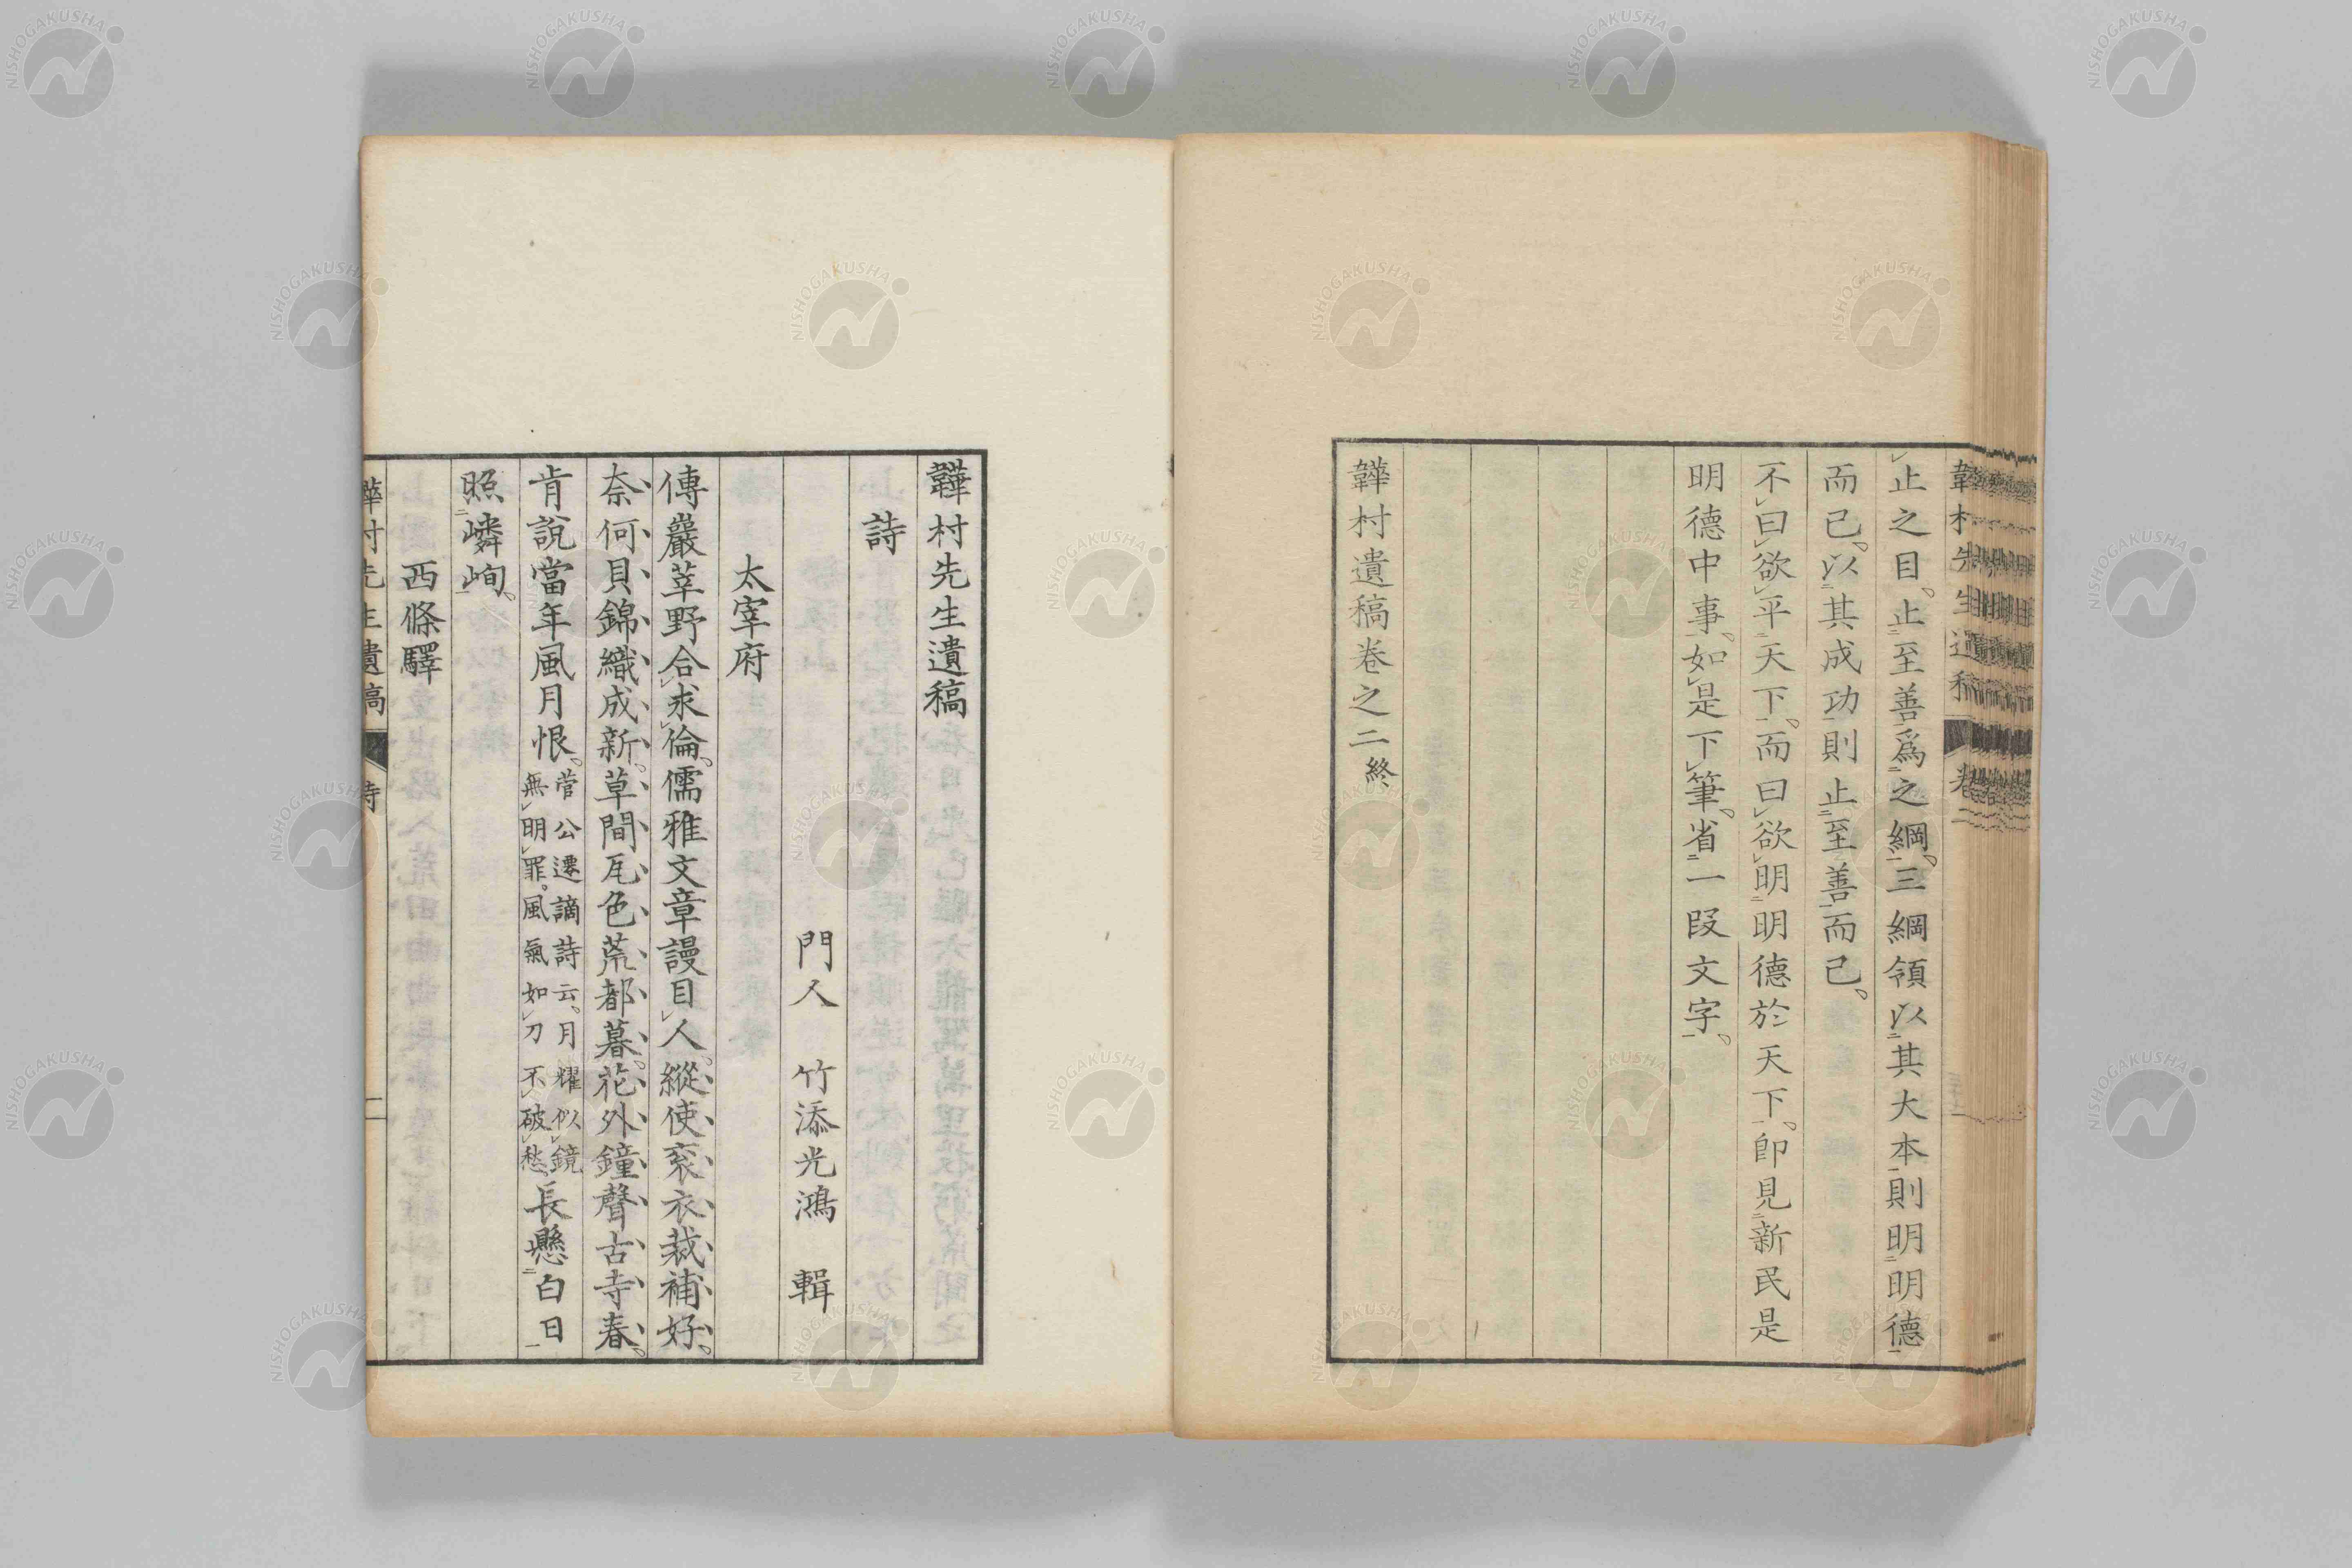 止之目。止至善爲之綱。三綱領以其大本則明明德
而已。以其成功則止至善而已。
不曰欲平天下。而曰欲明明德於天下。卽見新民是
明德中事。如是下筆。省一段文字。
韡村遺稿卷之二終
韡村先生遺稿
詩
門人 竹添光鴻 輯
太宰府
傳巖莘野合求倫。儒雅文章謾目人。縱使衮衣裁補好。
奈何貝錦織成新。草間瓦色荒都暮。花外鐘聲古寺春。
肯說當年風月恨。菅公遷謫詩云。月耀似鏡無明罪。風氣如刀不破愁。長懸白日
照嶙峋。
西條驛
韡村先生遺稿 詩 一
NISHOGAKUSHA